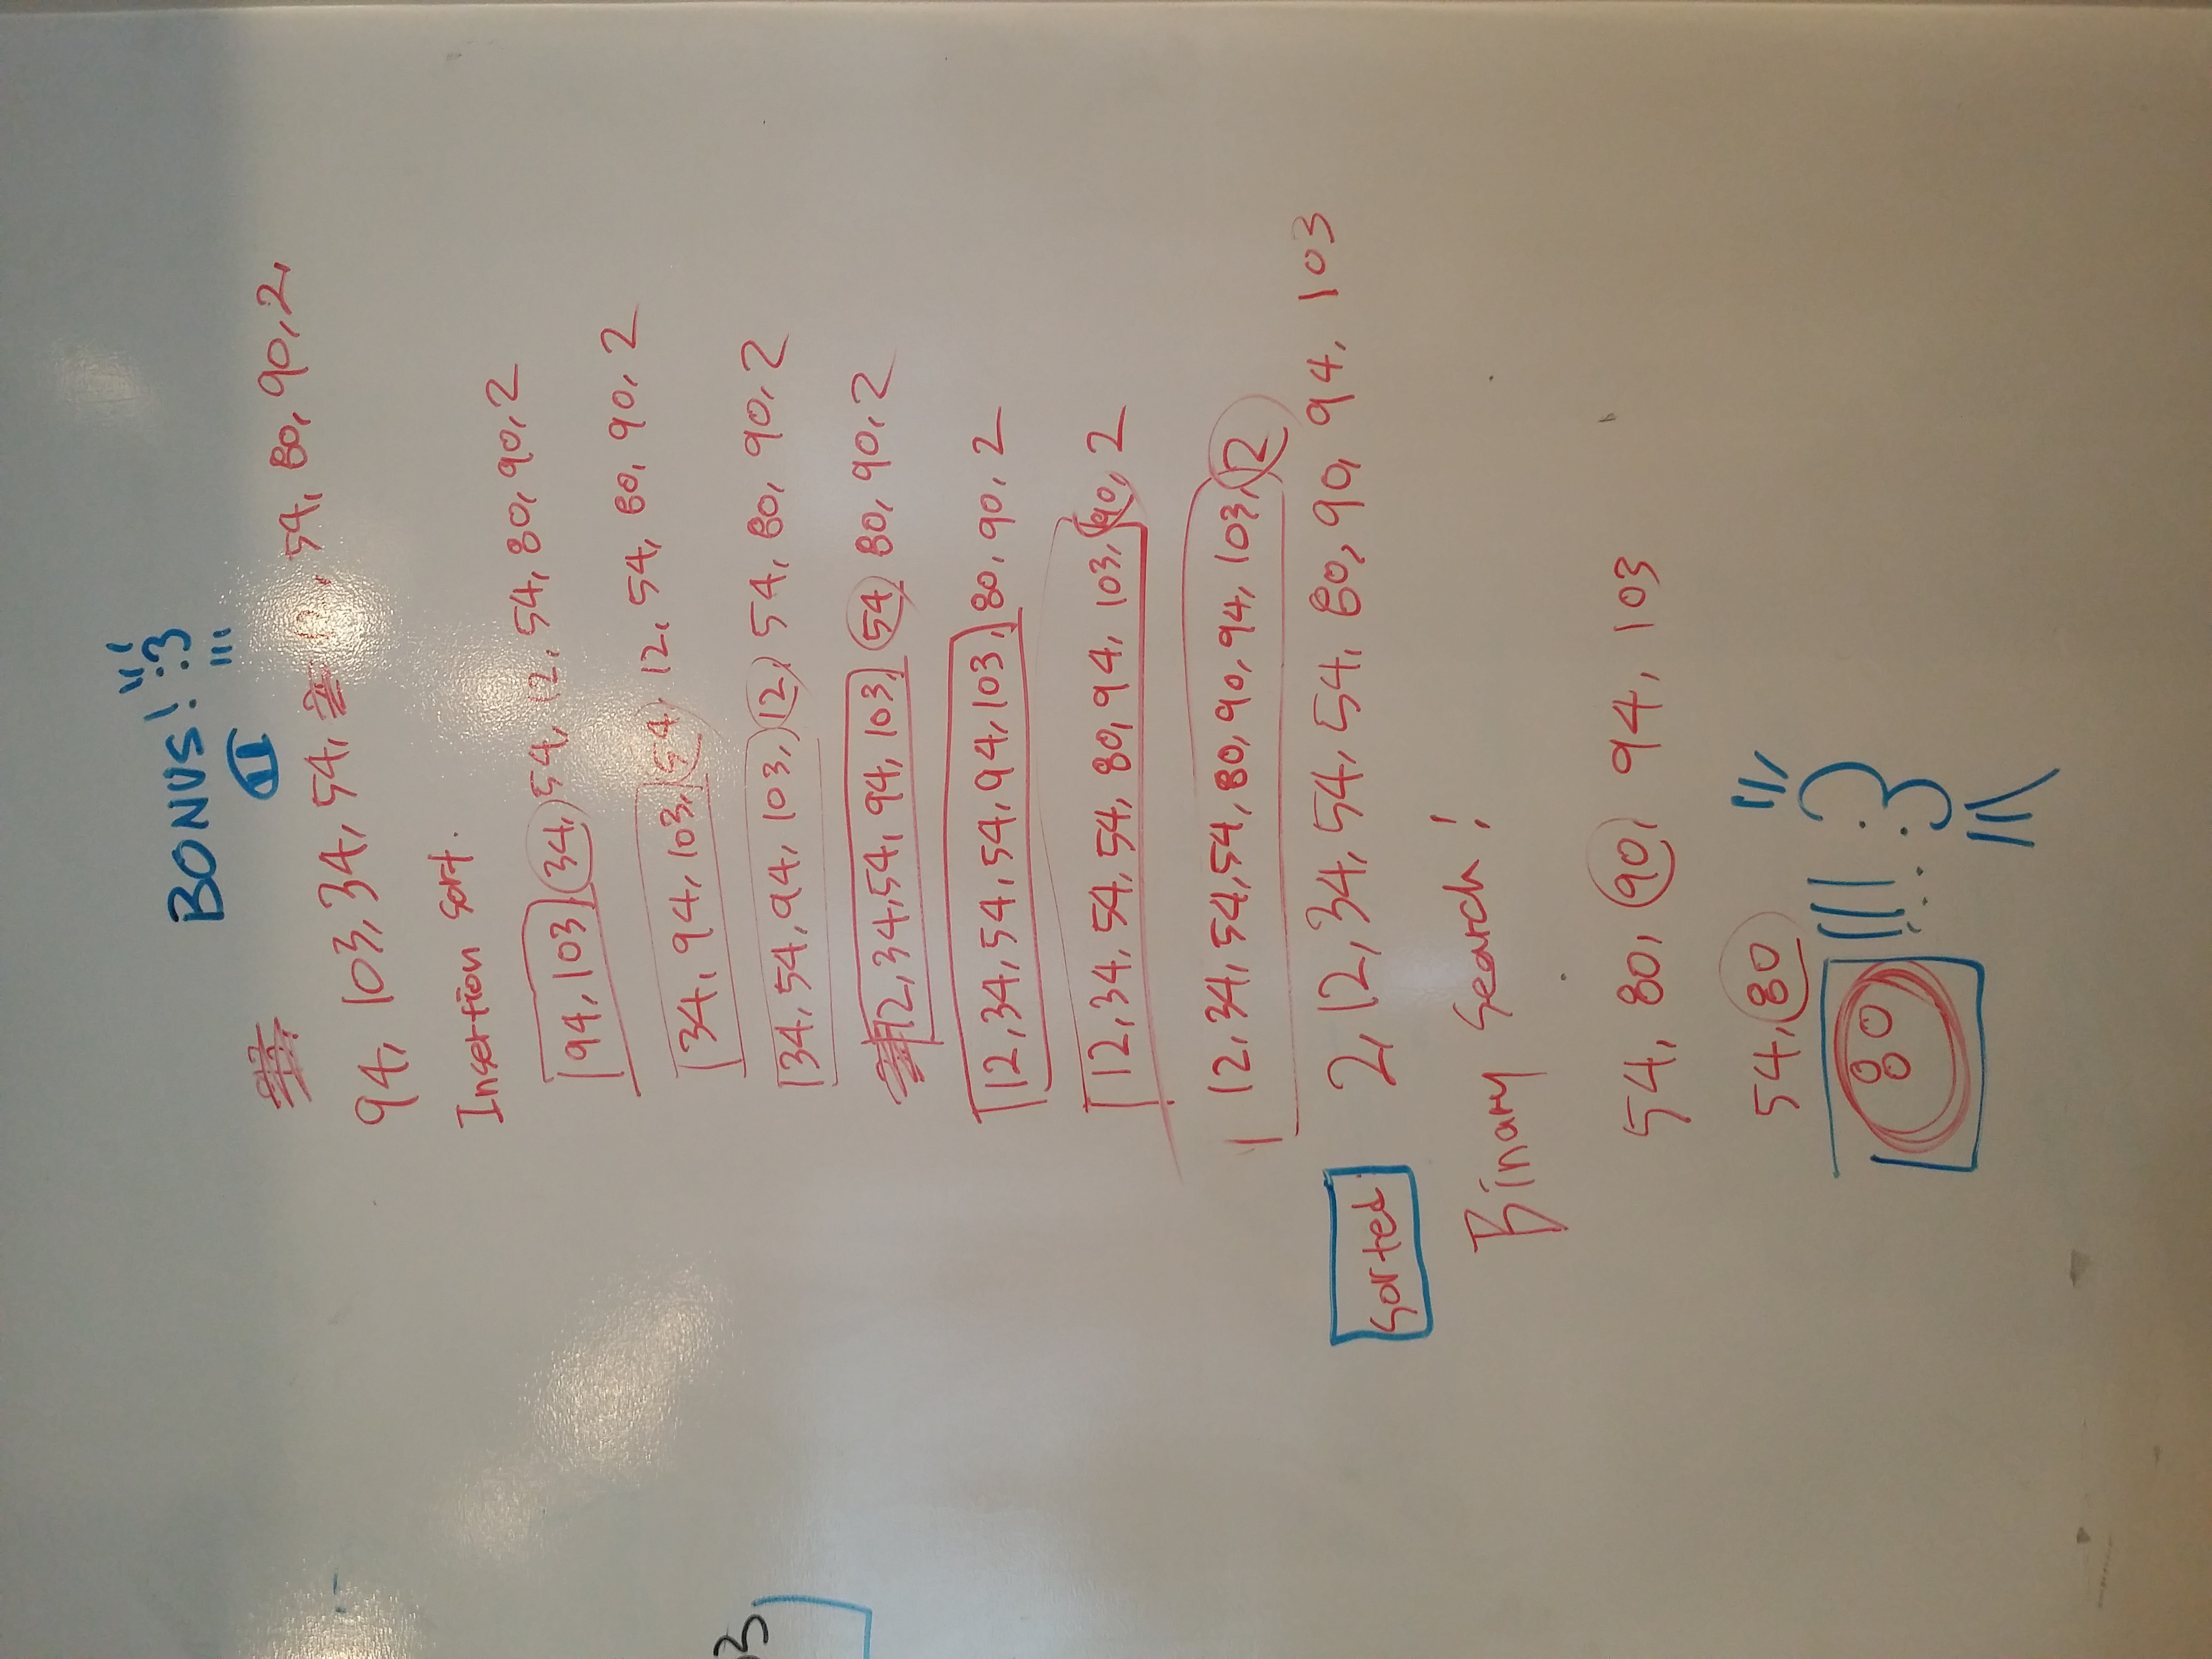 BONUS! :3
11
94, 103, 34, 54, 12, 54, 80, 90, 2,
Insertion sort.
94, 103, 34, 54, 12, 54, 80, 90, 2
34, 94, 103, 54, 12, 54, 80, 90, 2
34, 54, 94, 103, 12, 54, 80, 90, 2
12, 34, 54, 94, 103, 54 80, 90, 2
12, 34, 54, 54, 94, 103, 80, 90, 2
12, 34, 54, 54, 80, 94, 103, 90, 2
12, 34, 54, 54, 80, 90, 94, 103, 2
sorted. 2, 12, 34, 54, 54, 80, 90, 94, 103
Binary Search!
54, 80, 90, 94, 103
54, 80
80 !!! :3
3